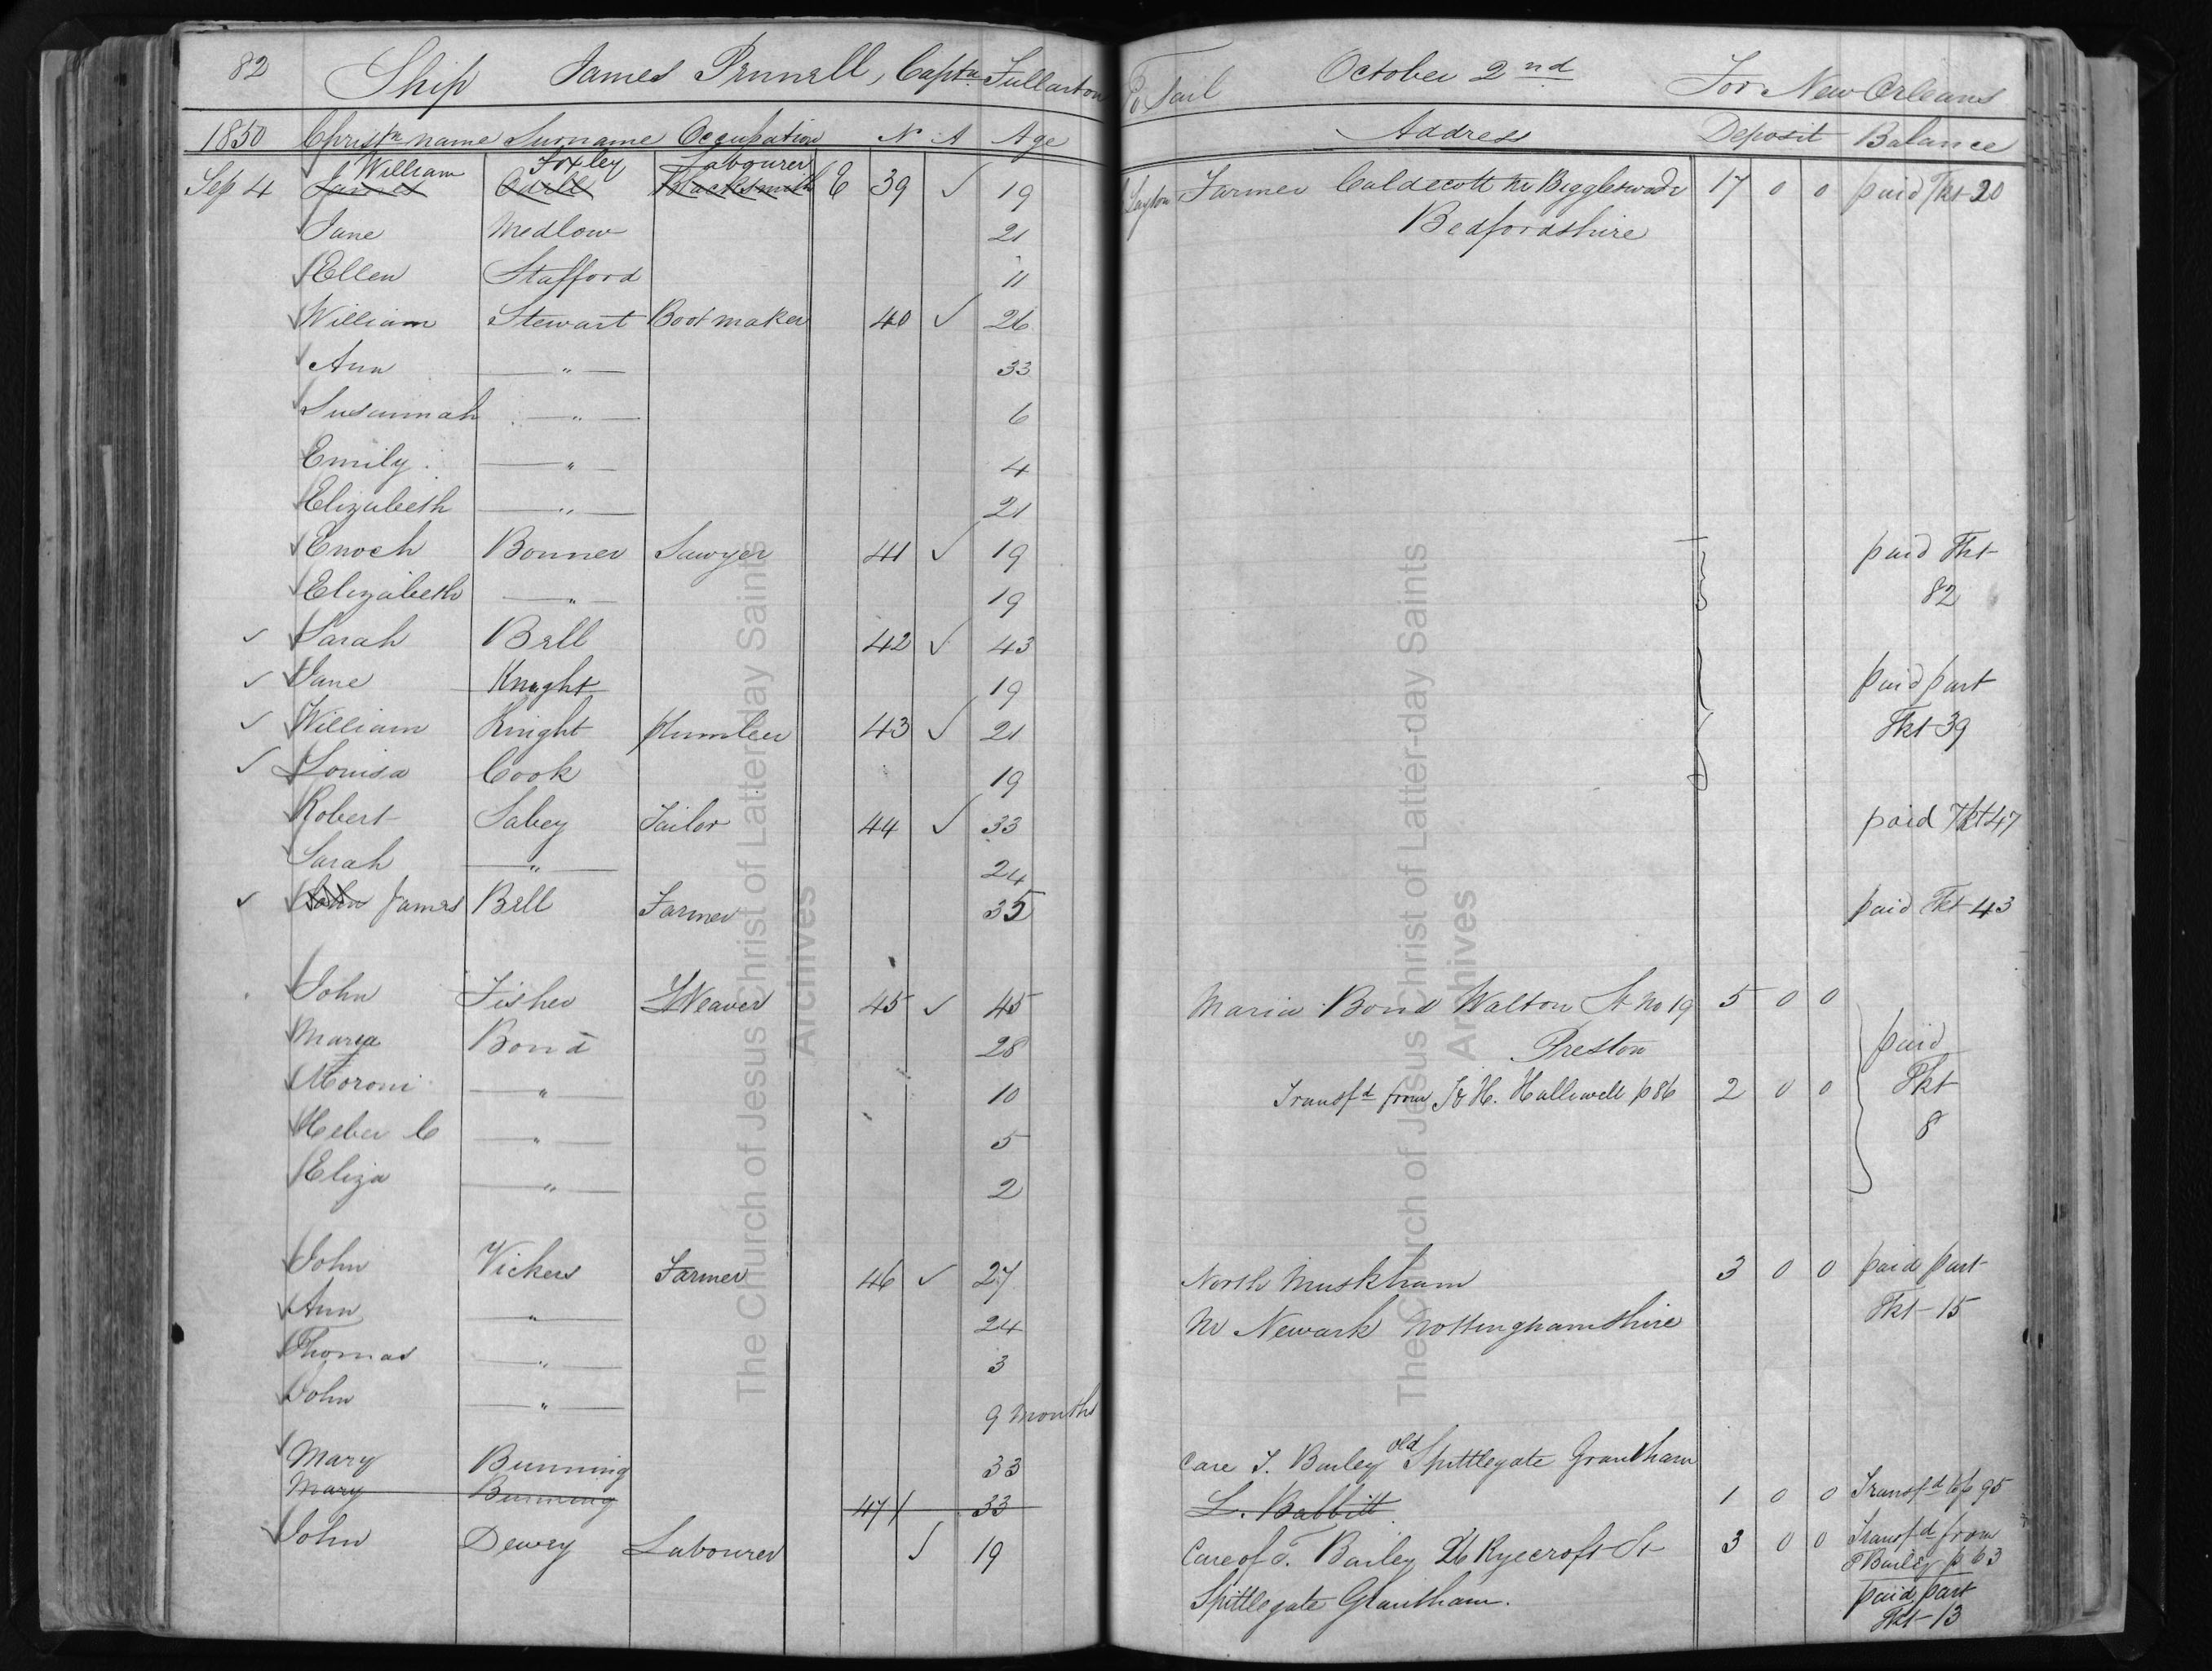 82 Ship James Pennell, Captn. Fullarton To Sail October 2nd For New Orleans
1850 Christn name Surname Occupation No A Age Address Deposit Balance
William Foxley Labourer
Sep 4 James Odell Blacksmith E 39 ✓ 19 Layton Farmer Caldecott Nr Biggleswade 17 0 0 paid Tkt 20
Jane Medlow 21 Bedfordshire
Ellen Stafford 11
William Stewart Bootmaker 40 ✓ 26
Ann — " — 33
Susannah — " — 6
Emily — " — 4
Elizabeth — " — 21
Enoch Bonner Sawyer 41 ✓ 19 paid Tkt
Elizabeth — " — 19 82
✓ Sarah Bell 42 ✓ 43
✓ Jane Knight 19 paid part
✓ William Knight Plumber 43 ✓ 21 Tkt 39
✓ Louisa Cook 19
Robert Sabey Tailor 44 ✓ 33 paid Tkt 47
Sarah — " — 24
✓ John James Bell Farmer 35 paid Tkt 43
John Fisher Weaver 45 ✓ 45 Maria Bond Walton St No 19 5 0 0
Marya Bond 28 Preston paid
Moroni — " — 10 Transfd from H. Halliwell p 86 2 0 0 Tkt
Heber C — " — 5 8
Eliza — " — 2
John Vickers Farmer 46 ✓ 27 North Muskham 3 0 0 paid part
Ann — " — 24 Nr Newark Nottinghamshire Tkt 15
Thomas — " — 3
John — " — 9 months
Mary Bunning 33 Care T. Bailey old Spittlegate Grantham
Mary Bunning 47 33 L. Babbitt 1 0 0 Transfd to p 95
John Dewey Labourer ✓ 19 Care of T. Bailey 26 Ryecroft St 3 0 0 Transfd from
Bailey p 63
Spittlegate Grantham. paid part
Tkt 13
The Church of Jesus Christ of Latter-day Saints
Archives
The Church of Jesus Christ of Latter-day Saints
Archives